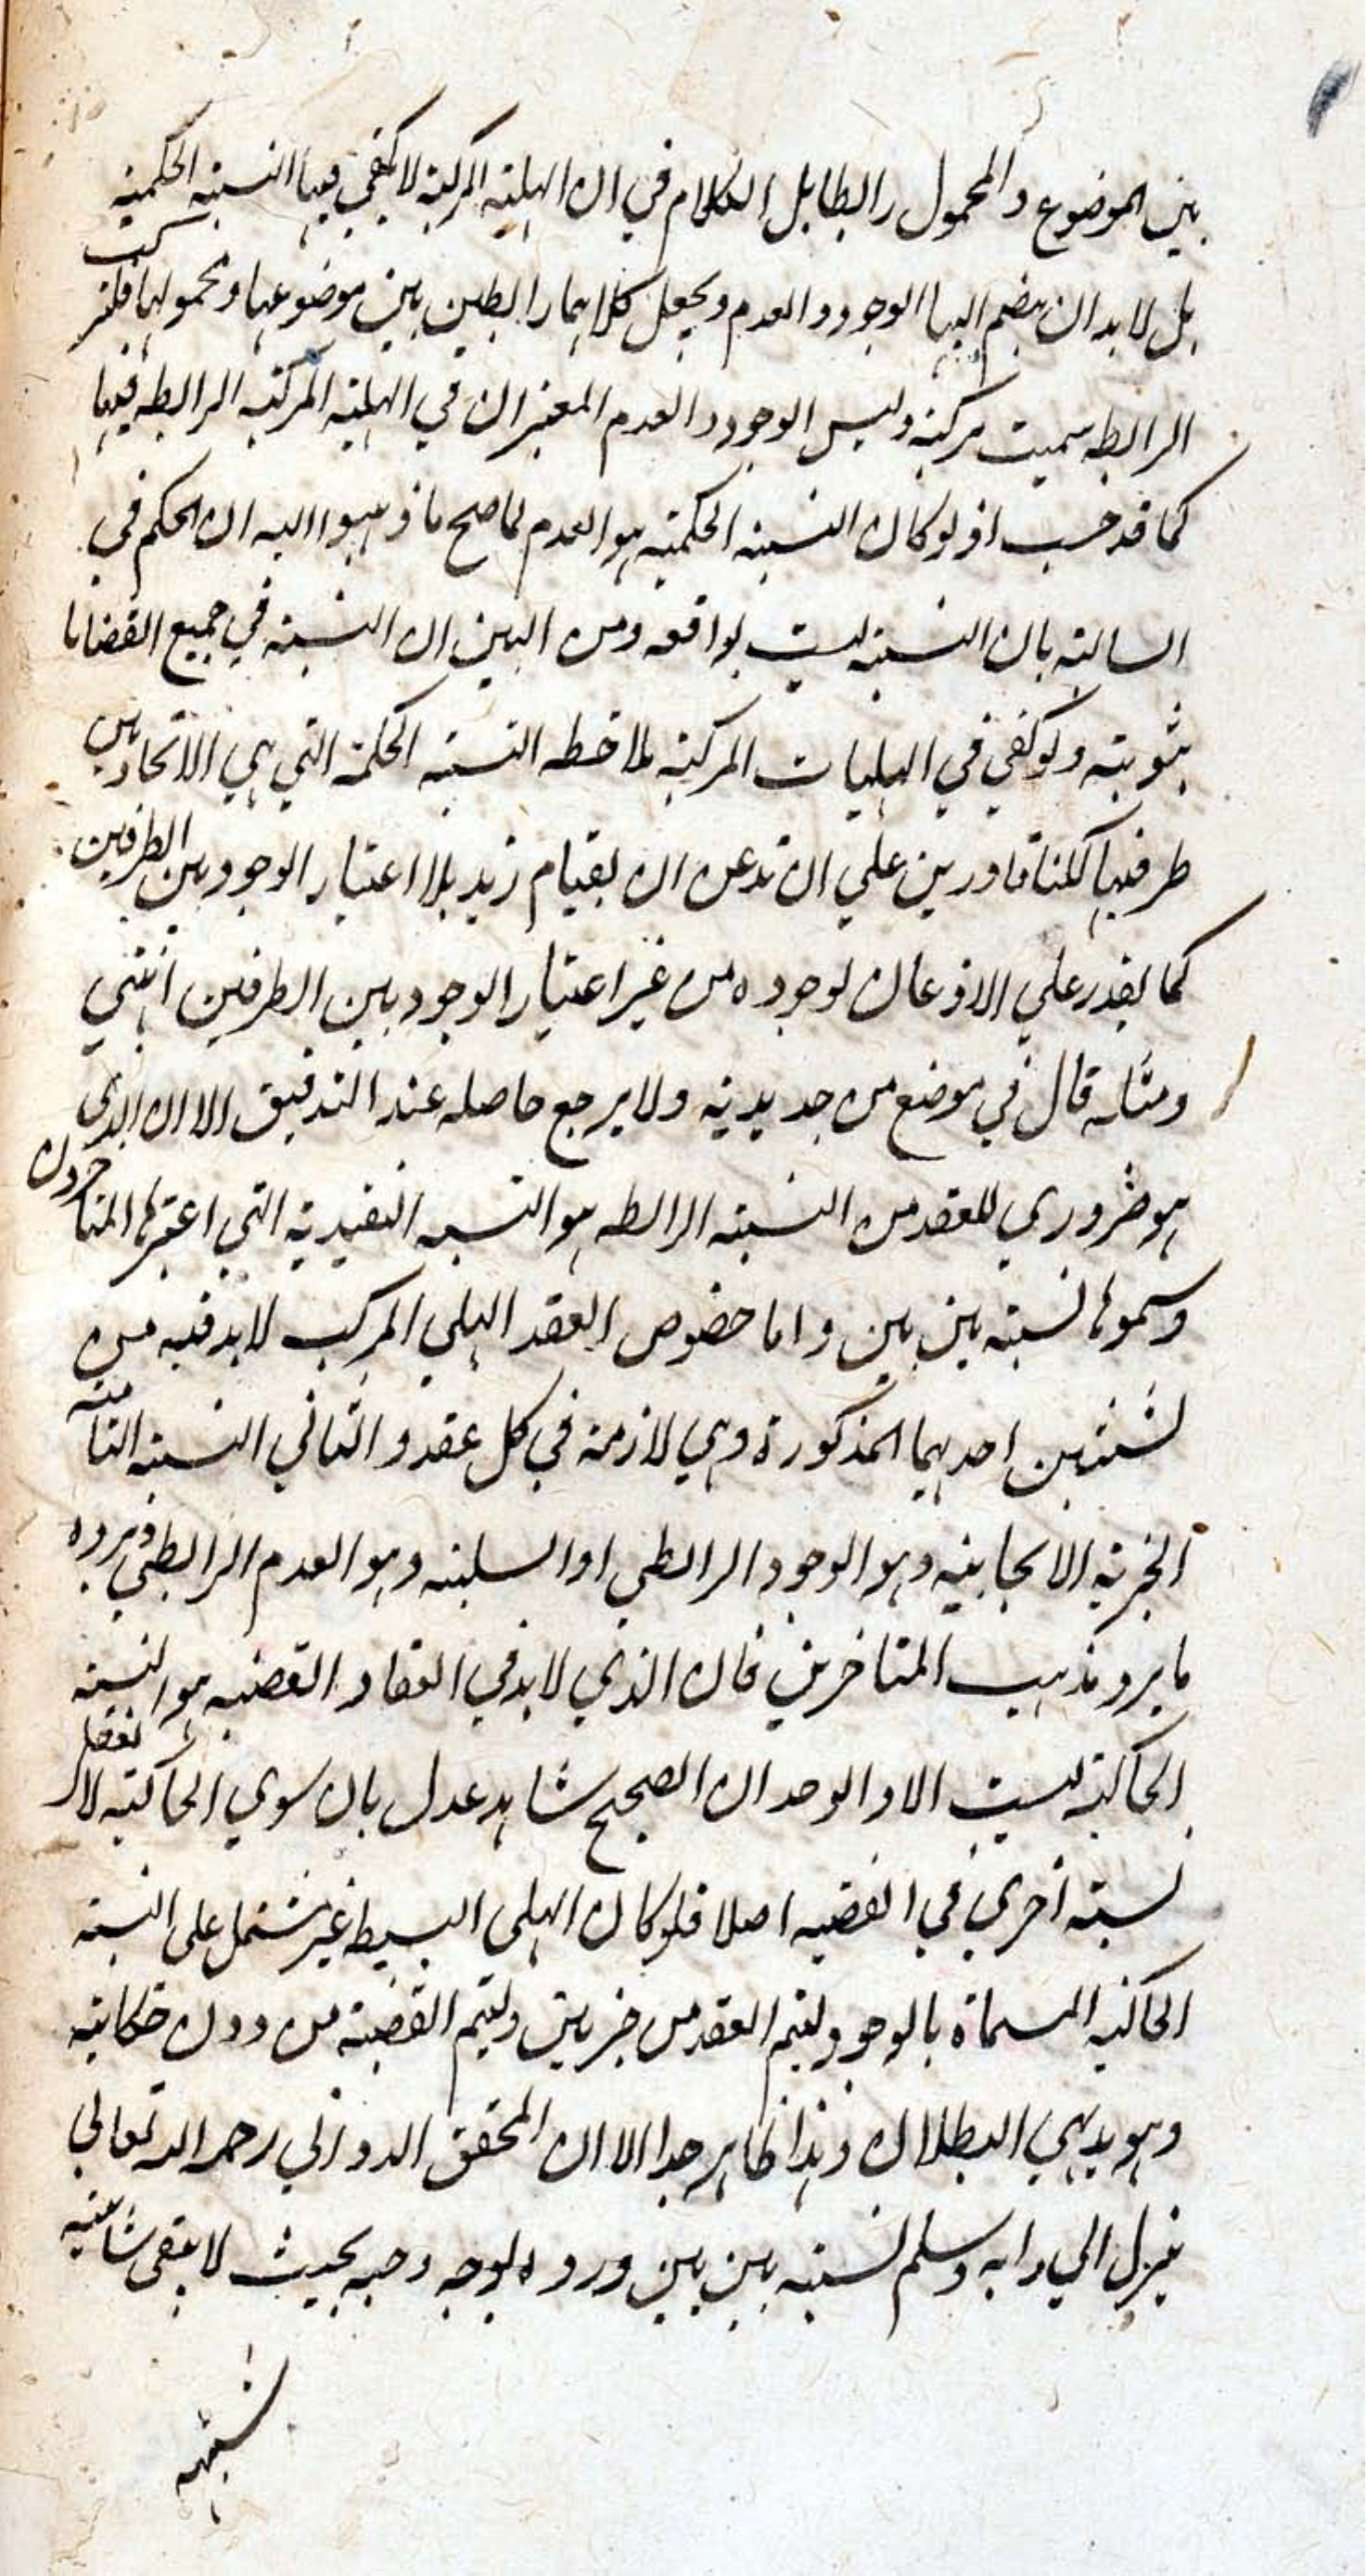 بين الموضوع والمحمول رابطا بل الكلام في ان الهلية المركبة لا يكفي فيها النسبة الحكمية
بل لا بد ان يضم اليها الوجود والعدم ويجعل كلاهما رابطين بين موضوعها ومحمولها فلتركب
الرابطه سميت مركبة وليس الوجود والعدم المعتبران في الهلية المركبة الرابطه فيها
كما قد حسب اذ لو كان النسبة الحكمية هو العدم لما صح ما ذهبوا اليه ان الحكم في
السالبة بان النسبة ليست بواقعه ومن البين ان النسبة في جميع القضايا
ثبوتية ولو كفي في الهليات المركبة ملاحظه النسبة الحكمة التي هي الاتحاد بين
طرفيها لكنا قادرين علي ان نذعن ان بقيام زيد بلا اعتبار الوجود بين الطرفين
كما يقدر علي الاذعان لوجوده من غير اعتبار الوجود بين الطرفين انتهي
ومثله قال في موضع من جديديته ولا يرجع حاصله عند التدقيق الا ان الذي
هو ضروري للعقد من النسبة الرابطه هو النسبه التقيدية التي اعتبرها المتاخرون
وسموها نسبة بين بين واما خصوص العقد الهلي المركب لا بد فيه من
نسبتين احديهما المذكورة وهي لازمة في كل عقد والثاني النسبة التامة
الخبرية الايجابية وهو الوجود الرابطي او السلبية وهو العدم الرابطي ويرده
ما يرد مذهب المتاخرين فان الذي لا بد في انعقاد القضيه هو النسبة
الحاكية ليست الا والوجدان الصحيح شاهد عدل بان سوي الحاكية لا نعقل
نسبة اخري في القضيه اصلا فلو كان الهلي البسيط غير مشتمل على النسبة
الحاكيه المسماة بالوجود لتم العقد من جزيين وليتم القضية من دون حكاية
وهو بديهي البطلان وهذا ظاهر جدا الا ان المحقق الدواني رحمه الله تعالي
ينزل الي دابه وسلم نسبة بين بين ورده لوجه وجيه بحيث لا يبقى شائبة
شبهه